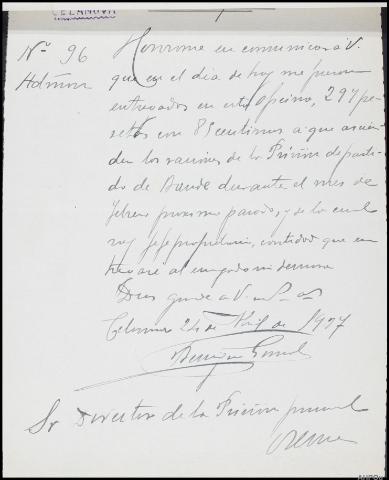 CELANOVA
Nº 96 Honrome en comunicar a V.
Admon que en el dia de hoy me fueron
entregados en esta oficina, 297 pe-
setas con 85 centimos a que ascien
den las raciones de la Prisión de parti-
do de Bande durante el mes de
febrero proximo pasado, y de la cual
soy Jefe propietario, cantidad que en
tregaré al encargado sin demora
Dios guarde a V. m. as
Celanova 24 de Abril de 1937
Sr Director de la Prisión provincial
Orense